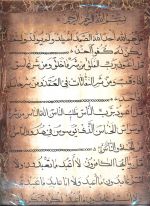 بسم الله الرحمن الرحيم
قل هو الله احد الله الصمد لم يلد ولم يولد ولم
يكن له كفوا احد
قل اعوذ برب الفلق من شر ما خلق ومن شر غاسق
اذا وقب ومن شر النفاثات في العقد ومن شر حاسد
اذا حسد
الناس ملك الناس اله الناس من شر
الوسواس الخناس الذي يوسوس في صدور الناس
قل يا ايها الكافرون لا اعبد ما تعبدون ولا
انتم عابدون ما اعبد ولا انا عابد ما عبدتم